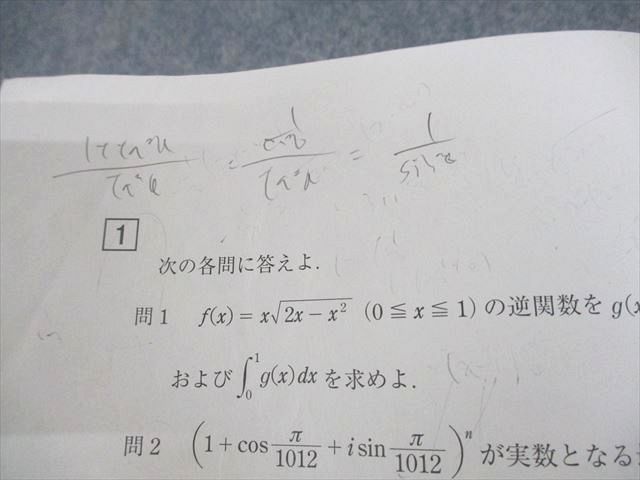 1+tan²θ / tan²θ = 1/cos²θ / tan²θ = 1 / sin²θ
1
次の各問に答えよ.
問1 f(x) = x√(2x−x²) (0 ≦ x ≦ 1) の逆関数を g(x
および ∫₀¹ g(x)dx を求めよ.
問2 (1 + cos π/1012 + i sin π/1012)ⁿ が実数となる